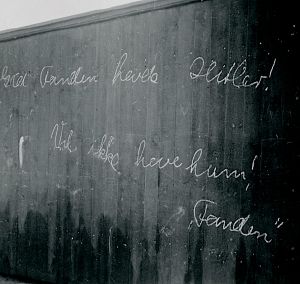 Gid Fanden havde Hitler!
Vil ikke have ham!
„Fanden"